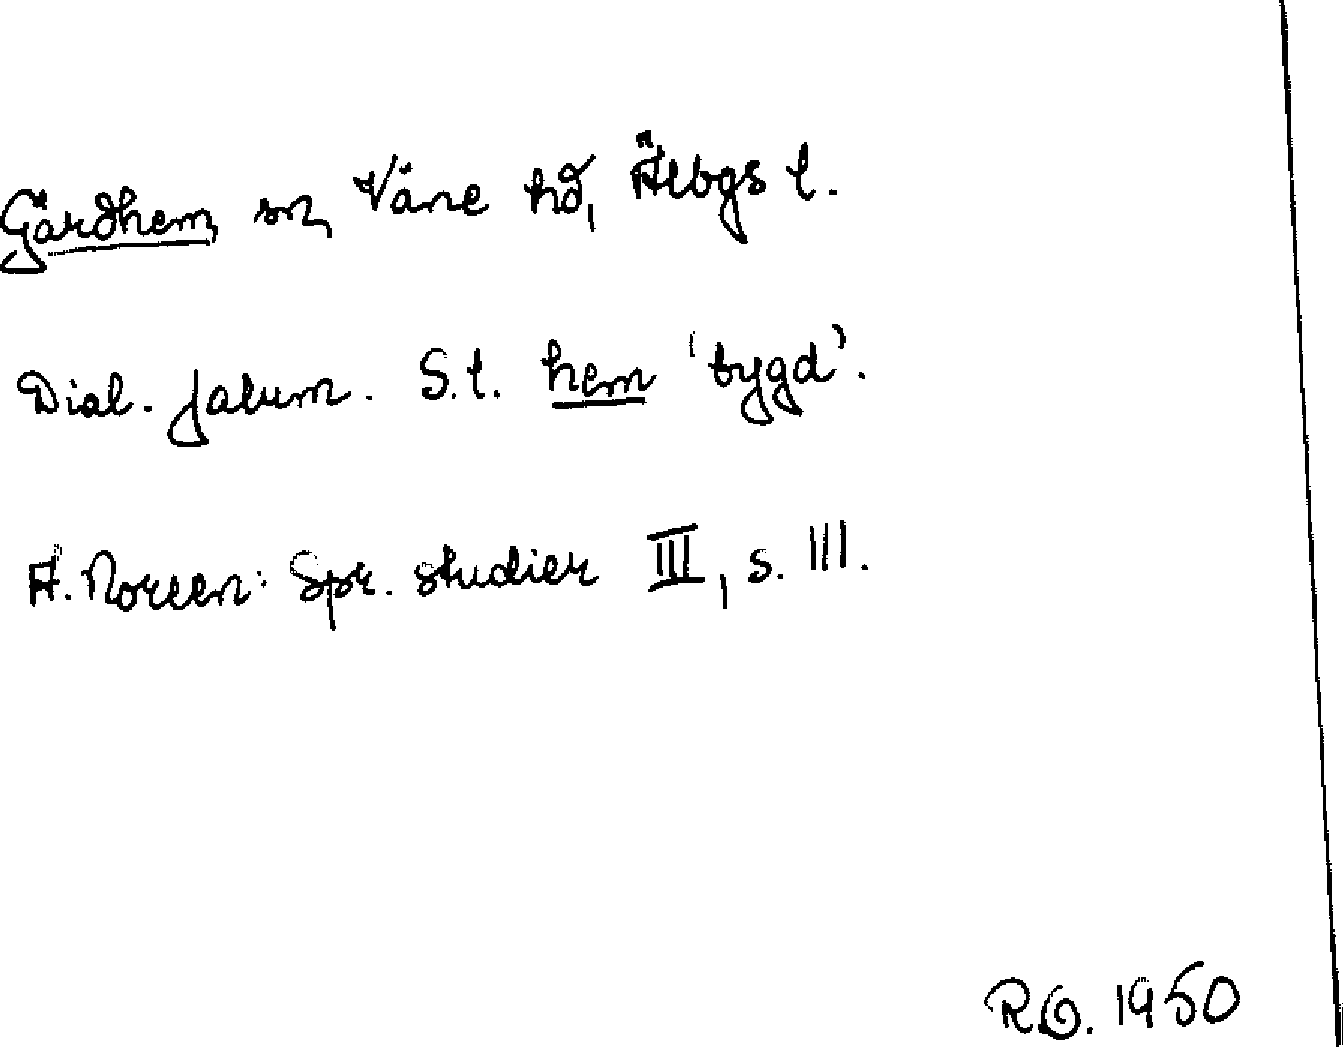 Gärdhem sn, Väne hd, Älbgs l.
Dial. jalum. S.l. hem 'bygd'.
A. Noreen: Spr. studier III, s. 111.
1950